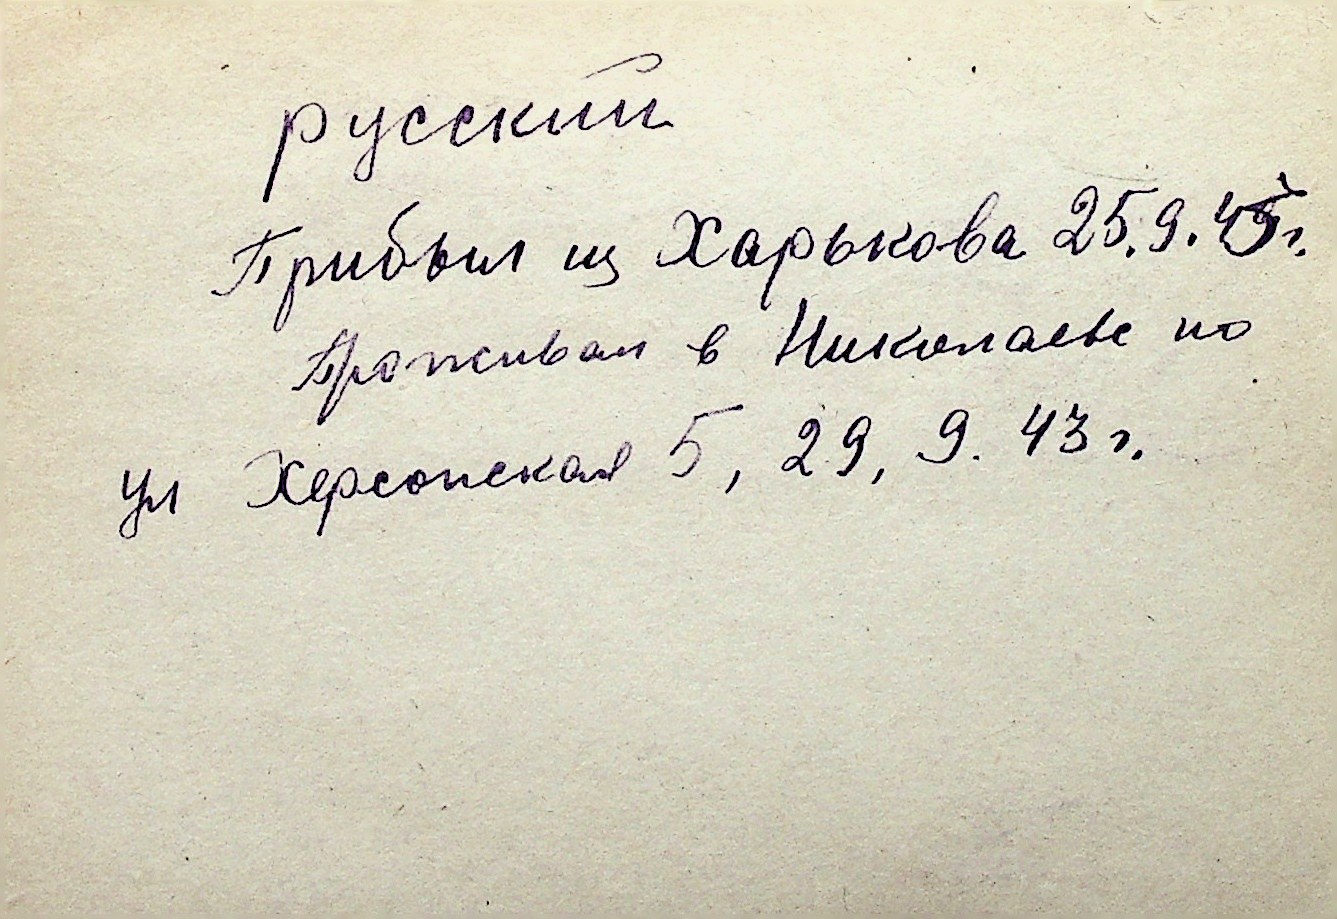 русский
Прибыл из Харькова 25.9.43г.
Проживал в Николаеве по
ул Херсонская 5, 29, 9. 43 г.